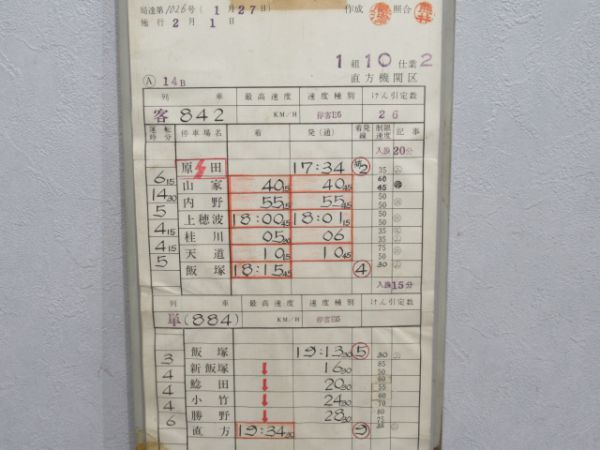 局達第1026号(1月27日)
作成 照合
施行 2月1日
1組10仕業2
直方機関区
Ⓐ 14B
列 車 最高速度 速度種別 けん引定数
客 842 KM/H 停客 26
運転時分 停車場名 着 発(通) 着発線 制限速度 記事
入換20分
原田 17:34 2 35
6 15 山家 40 15 40 45 60 45
14 30 内野 55 15 55 45 50
5 上穂波 18:00 45 18:01 15 50
4 15 桂川 05 30 06 35
4 15 天道 10 15 10 45 50
5 飯塚 18:15 45 4 30
入換15分
列 車 最高速度 速度種別 けん引定数
単(884) KM/H
飯塚 19:13 30 5 30
3 新飯塚 16 30
4 鯰田 20 30
4 小竹 24 30
4 勝野 28 30
6 直方 19:34 30 9